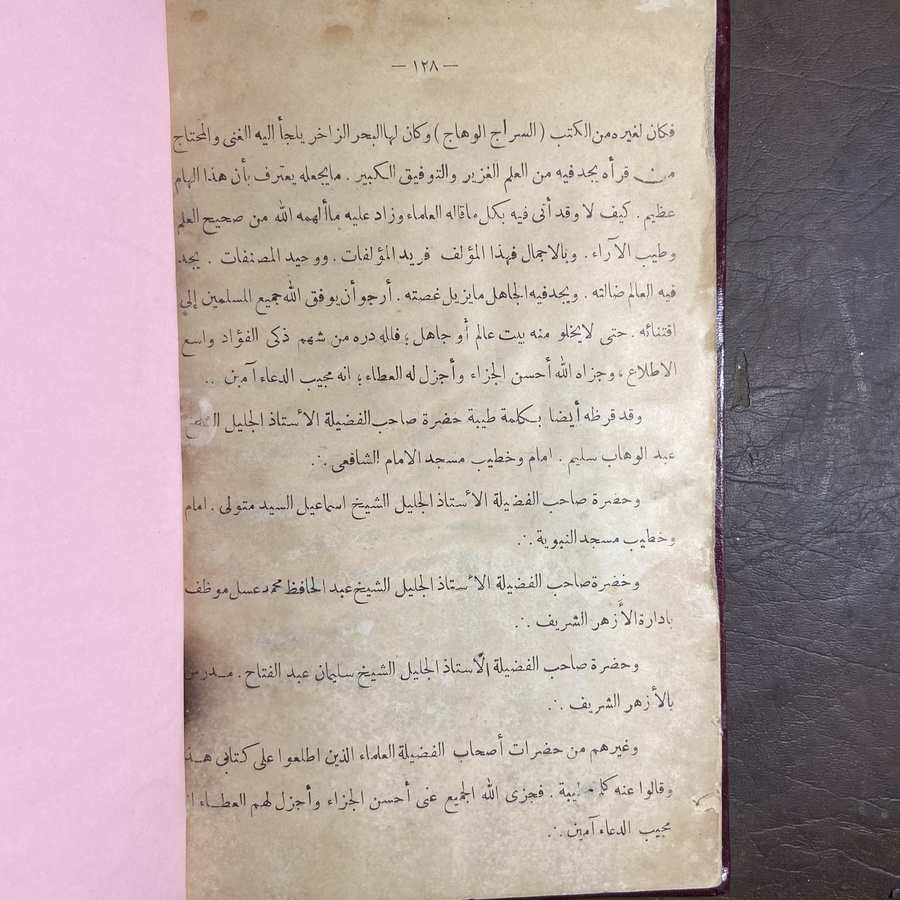 — ١٢٨ —
فكان لغيره من الكتب ( السراج الوهاج ) وكان لها البحر الزاخر يلجأ اليه الغنى والمحتاج
من قرأه يجد فيه من العلم الغزير والتوفيق الكبير . مايجعله يعترف بأن هذا الهام
عظيم . كيف لا وقد أتى فيه بكل ماقاله العلماء وزاد عليه ماألهمه الله من صحيح العلم
وطيب الآراء . وبالاجمال فهذا المؤلف فريد المؤلفات . ووحيد المصنفات . يجد
فيه العالم ضالته . ويجد فيه الجاهل مايزيل غصته . أرجو أن يوفق الله جميع المسلمين إلى
اقتنائه . حتى لايخلو منه بيت عالم أو جاهل ؛ فلله دره من شهم ذكى الفؤاد واسع
الاطلاع ، وجزاه الله أحسن الجزاء وأجزل له العطاء ؛ انه مجيب الدعاء آمين ..
وقد قرظه أيضا بكلمة طيبة حضرة صاحب الفضيلة الأستاذ الجليل
عبد الوهاب سليم . امام وخطيب مسجد الامام الشافعى ∴
وحضرة صاحب الفضيلة الأستاذ الجليل الشيخ اسماعيل السيد متولى . امام
وخطيب مسجد النبوية ∴
وحضرة صاحب الفضيلة الأستاذ الجليل الشيخ عبد الحافظ محمد عسل موظف
بادارة الأزهر الشريف ∴
وحضرة صاحب الفضيلة الأستاذ الجليل الشيخ سليمان عبد الفتاح . مدرس
بالأزهر الشريف ∴
وغيرهم من حضرات أصحاب الفضيلة العلماء الذين اطلعوا على كتابى
وقالوا عنه . فجزى الله الجميع عنى أحسن الجزاء وأجزل لهم العطاء
مجيب الدعاء آمين ∴